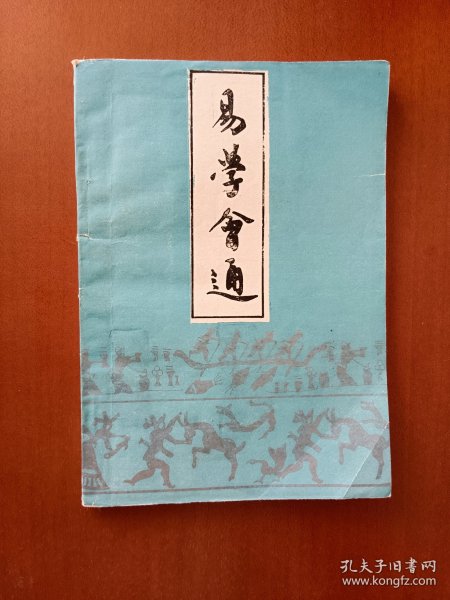 易學會通
孔夫子旧书网
www.kongfz.com